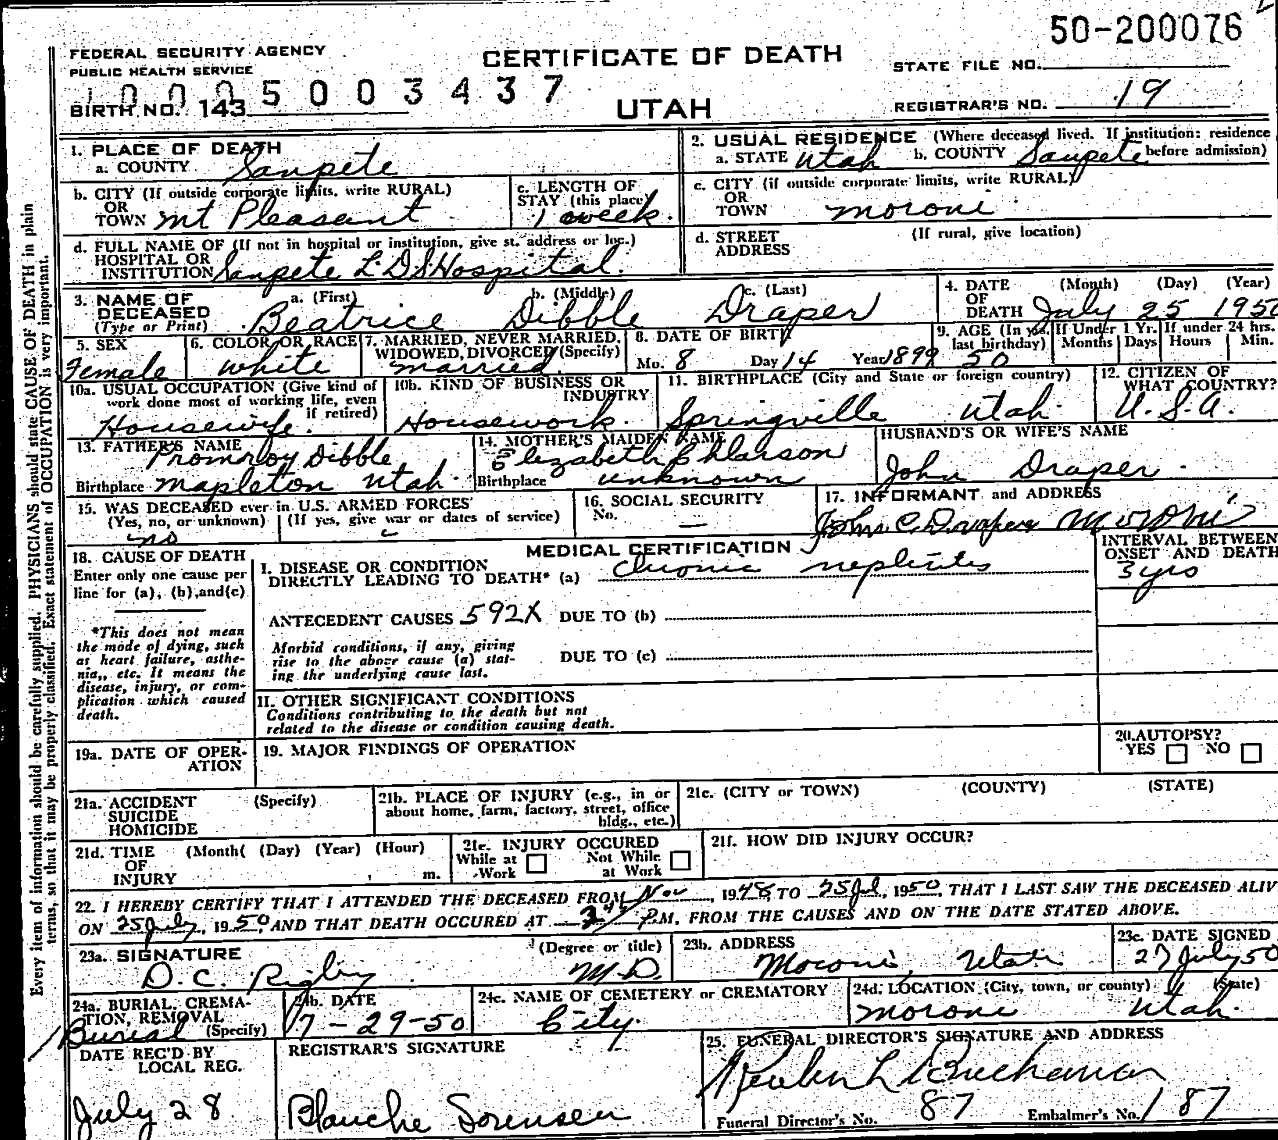 50-200076
FEDERAL SECURITY AGENCY
PUBLIC HEALTH SERVICE
CERTIFICATE OF DEATH
STATE FILE NO.
10005003437
BIRTH NO. 143
UTAH
REGISTRAR'S NO. 19
Every item of information should be carefully supplied. PHYSICIANS should state CAUSE OF DEATH in plain
terms, so that it may be properly classified. Exact statement of OCCUPATION is very important.
1. PLACE OF DEATH
a. COUNTY Sanpete
2. USUAL RESIDENCE (Where deceased lived. If institution: residence
a. STATE Utah b. COUNTY Sanpete before admission)
b. CITY (If outside corporate limits, write RURAL)
OR
TOWN Mt Pleasant
c. LENGTH OF
STAY (this place)
1 week.
c. CITY (if outside corporate limits, write RURAL)
OR
TOWN Moroni
d. FULL NAME OF (If not in hospital or institution, give st. address or loc.)
HOSPITAL OR
INSTITUTION Sanpete L.D.S. Hospital.
d. STREET (If rural, give location)
ADDRESS
3. NAME OF a. (First) b. (Middle) c. (Last)
DECEASED
(Type or Print) Beatrice Dibble Draper
4. DATE (Month) (Day) (Year)
OF
DEATH July 25 1950
5. SEX
Female
6. COLOR OR RACE
White
7. MARRIED, NEVER MARRIED,
WIDOWED, DIVORCED (Specify)
married.
8. DATE OF BIRTH
Mo. 8 Day 14 Year 1899
9. AGE (In yrs. If Under 1 Yr. If under 24 hrs.
last birthday) Months Days Hours Min.
50
10a. USUAL OCCUPATION (Give kind of
work done most of working life, even
if retired)
Housewife.
10b. KIND OF BUSINESS OR
INDUSTRY
Housework.
11. BIRTHPLACE (City and State or foreign country)
Springville Utah.
12. CITIZEN OF
WHAT COUNTRY?
U.S.A.
13. FATHER'S NAME
Dibble
Birthplace Mapleton Utah.
14. MOTHER'S MAIDEN NAME
Elizabeth
Birthplace unknown
HUSBAND'S OR WIFE'S NAME
John Draper.
15. WAS DECEASED ever in U.S. ARMED FORCES
(Yes, no, or unknown) (If yes, give war or dates of service)
no -
16. SOCIAL SECURITY
No. —
17. INFORMANT and ADDRESS
John C. Draper Moroni
18. CAUSE OF DEATH
Enter only one cause per
line for (a), (b), and (c)
*This does not mean
the mode of dying, such
as heart failure, asthe-
nia,, etc. It means the
disease, injury, or com-
plication which caused
death.
MEDICAL CERTIFICATION
INTERVAL BETWEEN
ONSET AND DEATH
I. DISEASE OR CONDITION
DIRECTLY LEADING TO DEATH* (a) Chronic nephritis
3 yrs
ANTECEDENT CAUSES 592X DUE TO (b)
Morbid conditions, if any, giving
rise to the above cause (a) stat-
ing the underlying cause last.
DUE TO (c)
II. OTHER SIGNIFICANT CONDITIONS
Conditions contributing to the death but not
related to the disease or condition causing death.
19a. DATE OF OPER-
ATION
19. MAJOR FINDINGS OF OPERATION
20. AUTOPSY?
YES NO
21a. ACCIDENT (Specify)
SUICIDE
HOMICIDE
21b. PLACE OF INJURY (e.g., in or
about home, farm, factory, street, office
bldg., etc.)
21c. (CITY or TOWN) (COUNTY) (STATE)
21d. TIME (Month( (Day) (Year) (Hour)
OF
INJURY m.
21e. INJURY OCCURED
While at Not While
Work at Work
21f. HOW DID INJURY OCCUR?
22. I HEREBY CERTIFY THAT I ATTENDED THE DECEASED FROM Nov, 1948, TO 25 Jul, 1950, THAT I LAST SAW THE DECEASED ALIV
ON 25 July, 1950, AND THAT DEATH OCCURED AT P.M. FROM THE CAUSES AND ON THE DATE STATED ABOVE.
23a. SIGNATURE (Degree or title)
D.C. Rigby M.D.
23b. ADDRESS
Moroni, Utah
23c. DATE SIGNED
27 July 50
24a. BURIAL, CREMA-
TION, REMOVAL
Burial (Specify)
24b. DATE
7-29-50
24c. NAME OF CEMETERY or CREMATORY
City.
24d. LOCATION (City, town, or county) (State)
Moroni Utah.
DATE REC'D BY
LOCAL REG.
July 28
REGISTRAR'S SIGNATURE
Blanche Sorensen
25. FUNERAL DIRECTOR'S SIGNATURE AND ADDRESS
Reuben L Buchanan
Funeral Director's No. 87 Embalmer's No. 187